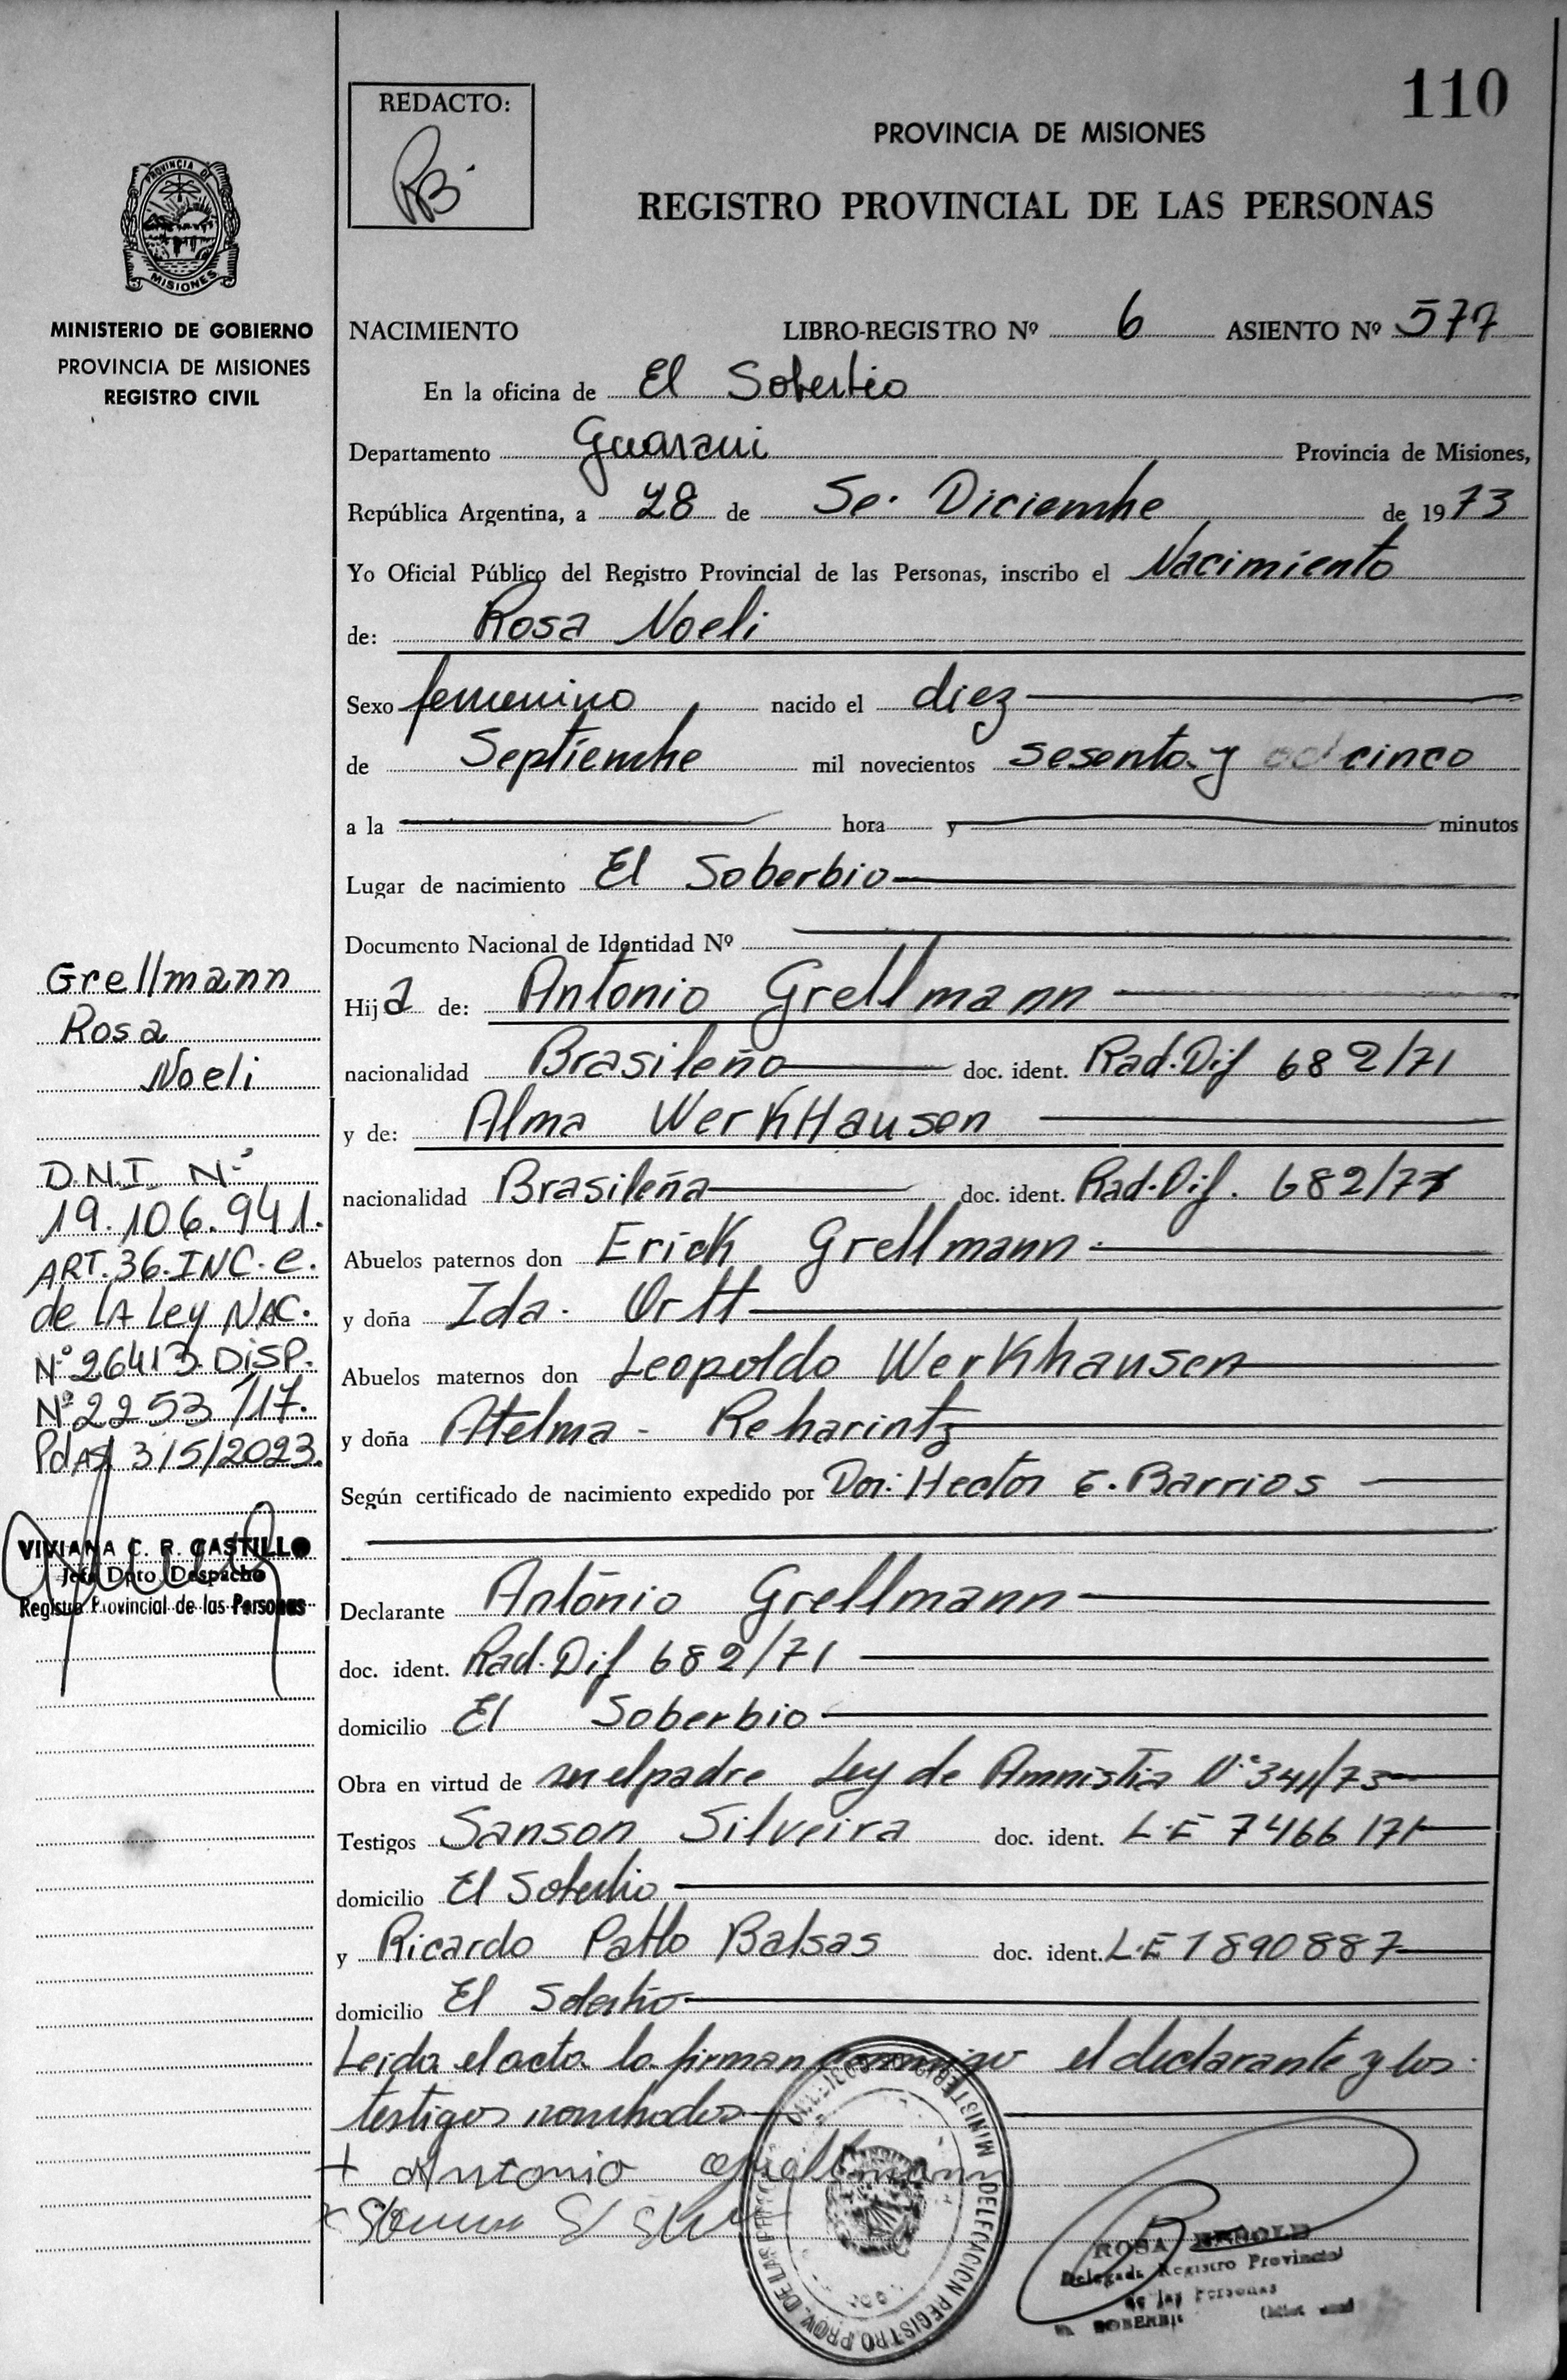 110
REDACTO:
PROVINCIA DE MISIONES
REGISTRO PROVINCIAL DE LAS PERSONAS
PROVINCIA DE
MISIONES
MINISTERIO DE GOBIERNO
PROVINCIA DE MISIONES
REGISTRO CIVIL
NACIMIENTO LIBRO-REGISTRO Nº 6 ASIENTO Nº 577
En la oficina de El Soberbio
Departamento Guarani Provincia de Misiones,
República Argentina, a 28 de Se. Diciembre de 1973
Yo Oficial Público del Registro Provincial de las Personas, inscribo el Nacimiento
de: Rosa Noeli
Sexo femenino nacido el diez
de Septiembre mil novecientos sesenta y cinco
a la hora y minutos
Lugar de nacimiento El Soberbio
Documento Nacional de Identidad Nº
Hija de: Antonio Grellmann
nacionalidad Brasileño doc. ident. Rad. Dif 682/71
y de: Alma WerKHausen
nacionalidad Brasileña doc. ident. Rad. Dif. 682/71
Abuelos paternos don Erick Grellmann
y doña Ida Ortt
Abuelos maternos don Leopoldo Werkhausen
y doña Atelma - Reharintz
Según certificado de nacimiento expedido por Don: Hector E. Barrios
Declarante Antonio Grellmann
doc. ident. Rad. Dif 682/71
domicilio El Soberbio
Obra en virtud de ser el padre Ley de Amnistia Nº 341/73
Testigos Sanson Silveira doc. ident. L.E 7466171
domicilio El Soberbio
y Ricardo Pablo Balsas doc. ident. L.E 1890887
domicilio El Soberbio
Leida el acta la firman conmigo el declarante y los
testigos nombrados
+ Antonio Grellmann
Grellmann
Rosa
Noeli
D.N.I. Nº
19.106.941.
ART. 36. INC. e.
de LA Ley NAC.
Nº 26413. DISP.
Nº 2253/17.
Pdas, 3/5/2023.
VIVIANA C. R. CASTILLO
Jefe Dpto Despacho
Registro Provincial de las Personas
MINISTERIO DE GOBIERNO
DELEGACION REGISTRO PROV. DE LAS PERSONAS
ROSA
Delegada Registro Provincial
de las Personas
EL SOBERBIO